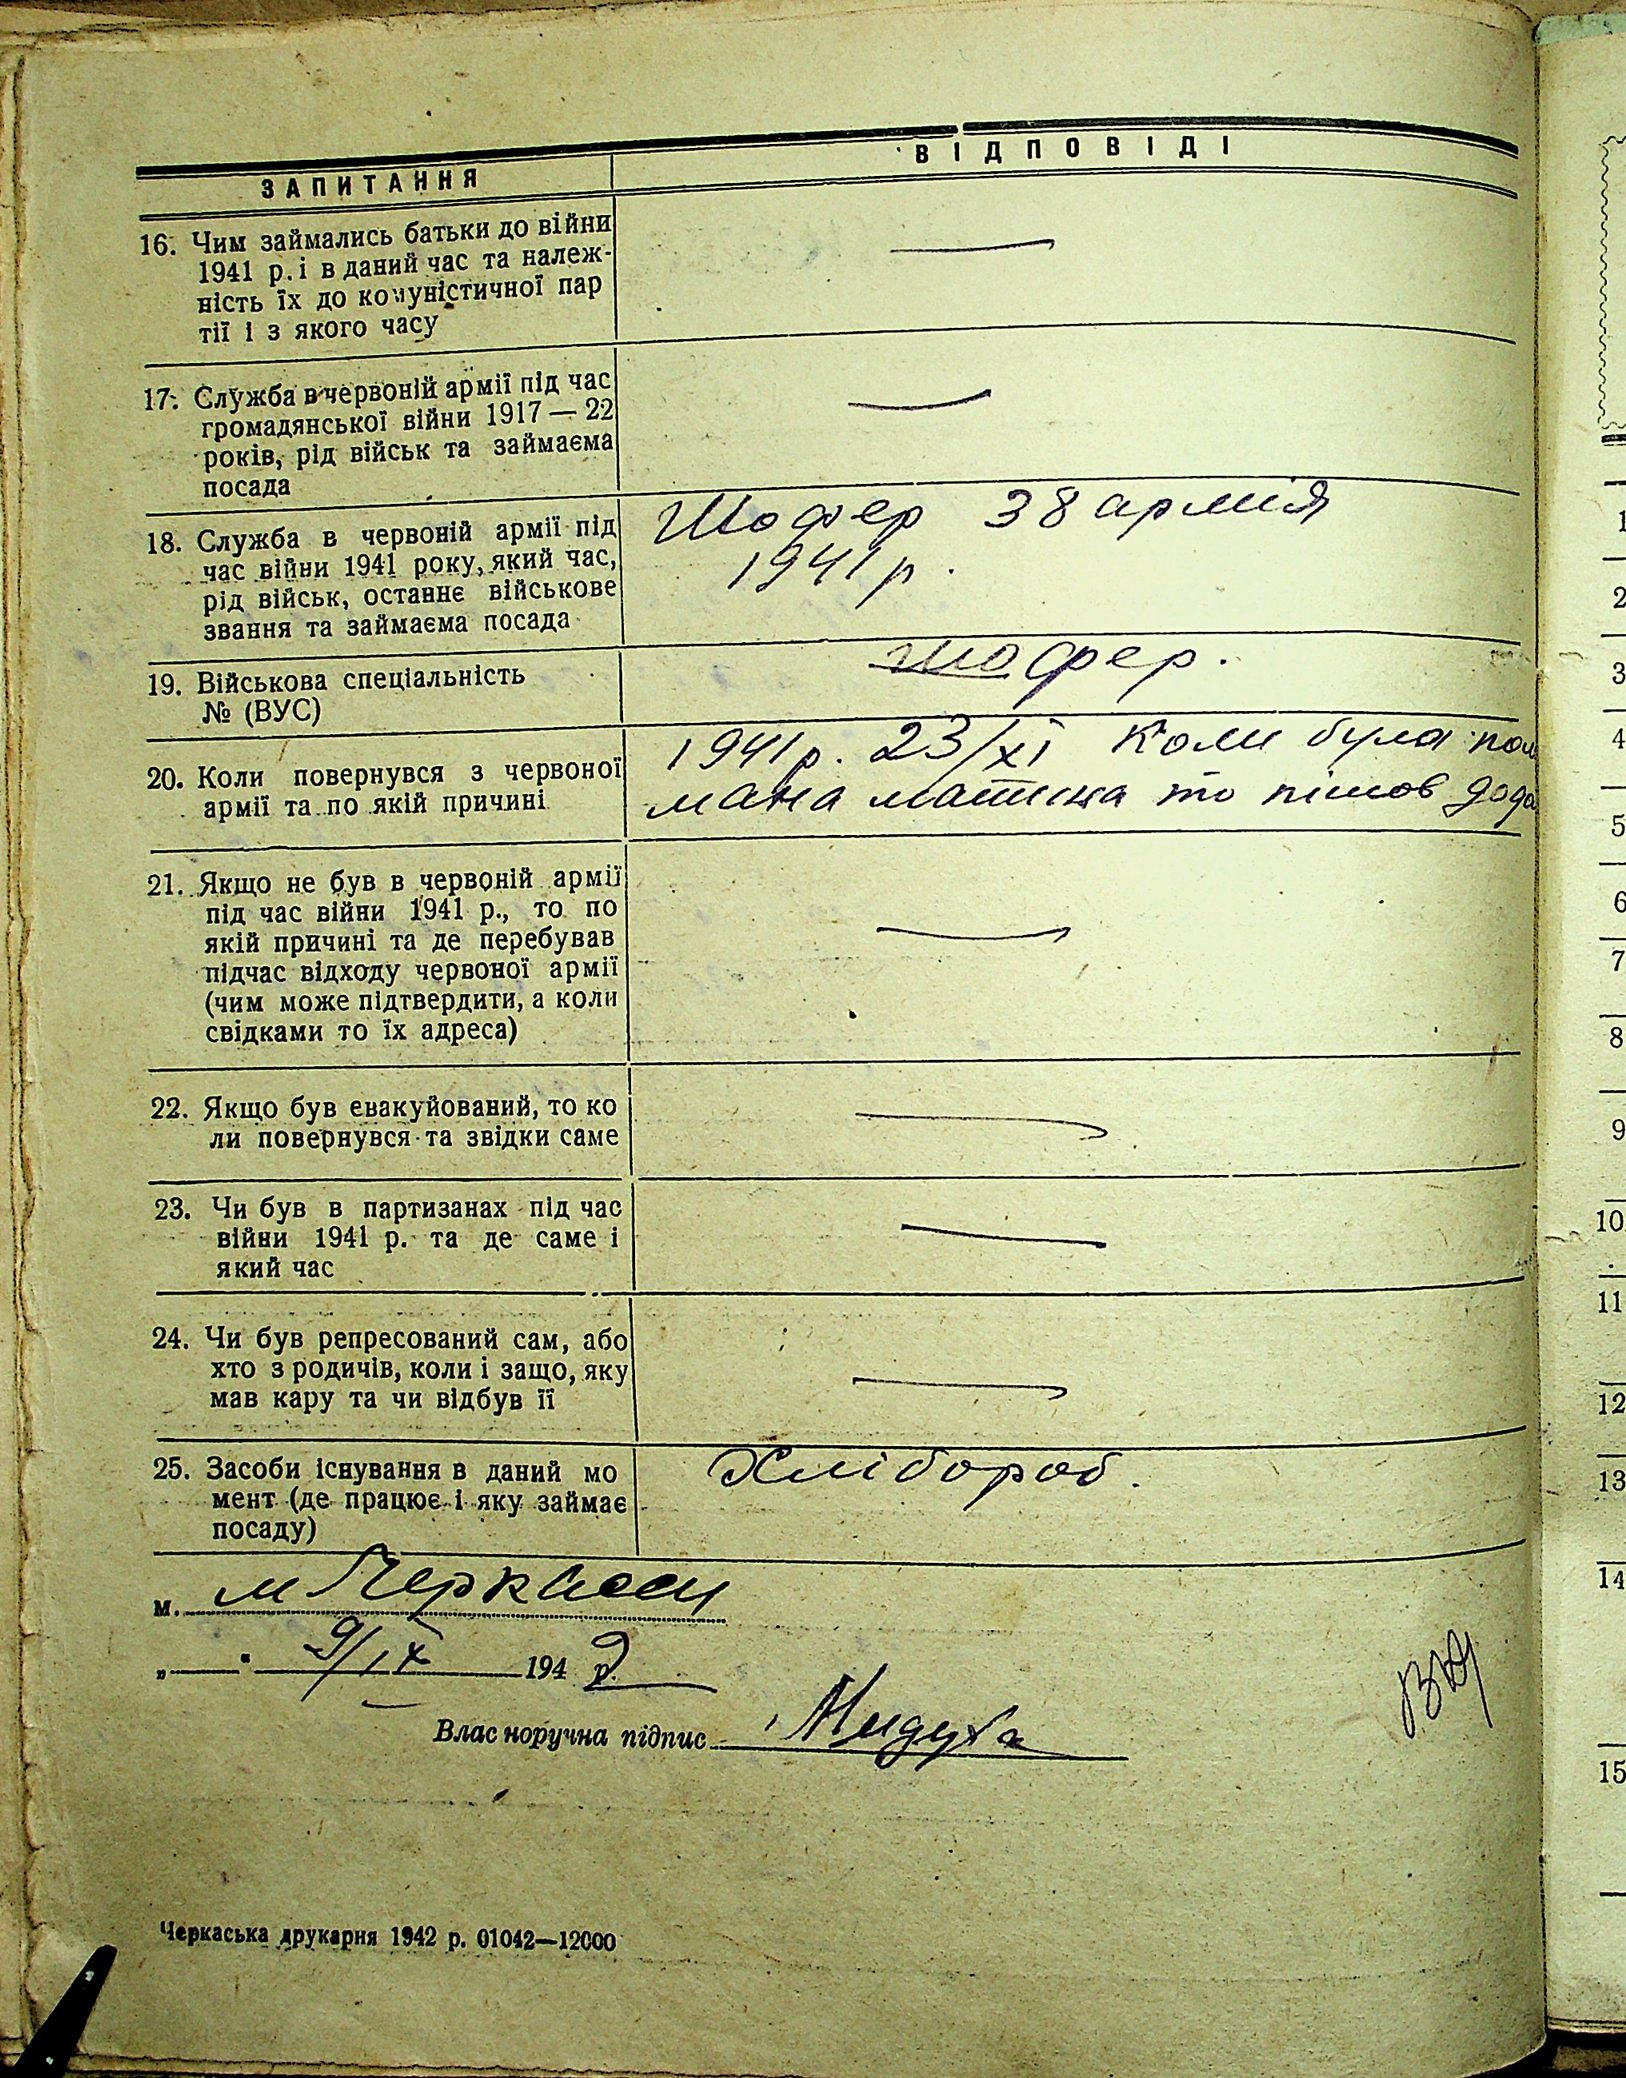 ЗАПИТАННЯ
ВІДПОВІДІ
16. Чим займались батьки до війни
1941 р. і в даний час та належ-
ність їх до комуністичної пар
тії і з якого часу
17. Служба в червоній армії під час
громадянської війни 1917 — 22
років, рід військ та займаєма
посада
18. Служба в червоній армії під
час війни 1941 року, який час,
рід військ, останнє військове
звання та займаєма посада
Шофер 38 армія
1941 р.
19. Військова спеціальність
№ (ВУС)
шофер.
20. Коли повернувся з червоної
армії та по якій причині
1941 р. 23/XI Коли була пол
мана машина то пішов додо
21. Якщо не був в червоній армії
під час війни 1941 р., то по
якій причині та де перебував
підчас відходу червоної армії
(чим може підтвердити, а коли
свідками то їх адреса)
22. Якщо був евакуйований, то ко
ли повернувся та звідки саме
23. Чи був в партизанах під час
війни 1941 р. та де саме і
який час
24. Чи був репресований сам, або
хто з родичів, коли і защо, яку
мав кару та чи відбув її
25. Засоби існування в даний мо
мент (де працює і яку займає
посаду)
Хлібороб.
м. м Черкаси
„ “ 9/IX 1942 р.
Власноручна підпис
Черкаська друкарня 1942 р. 01042—12000
1
2
3
4
5
6
7
8
9
10
11
12
13
14
15